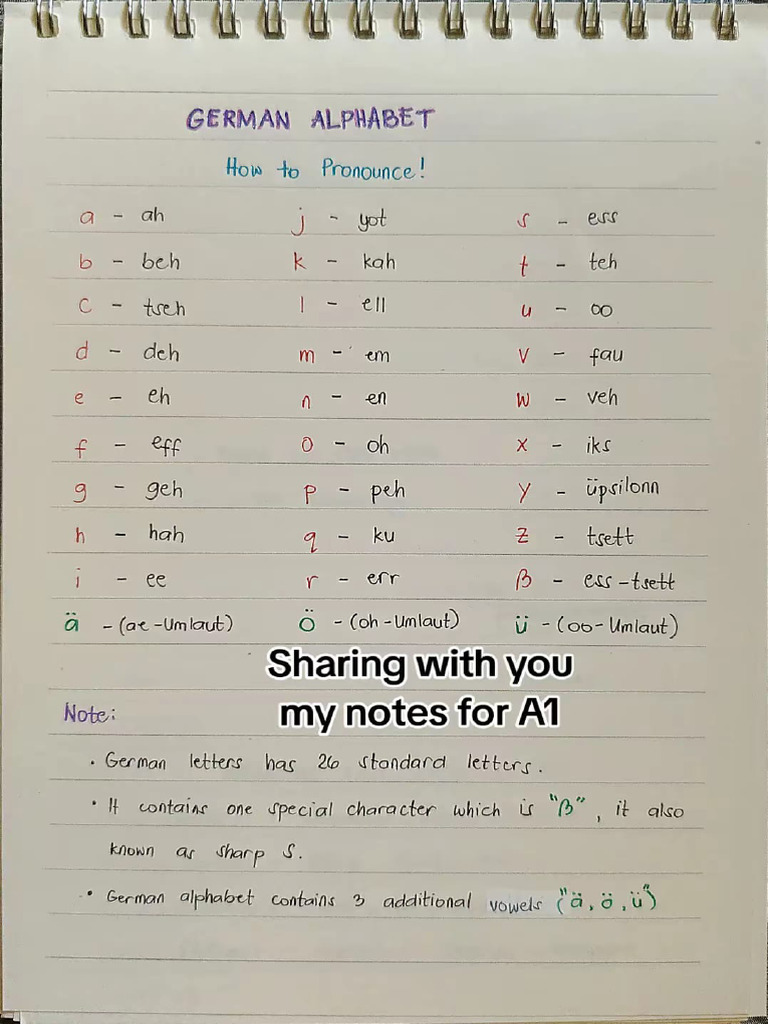 GERMAN ALPHABET
How to Pronounce!
a - ah
b - beh
c - tseh
d - deh
e - eh
f - eff
g - geh
h - hah
i - ee
ä - (ae-Umlaut)
j - yot
k - kah
l - ell
m - em
n - en
o - oh
p - peh
q - ku
r - err
ö - (oh-Umlaut)
s - ess
t - teh
u - oo
v - fau
w - veh
x - iks
y - üpsilonn
z - tsett
β - ess-tsett
ü - (oo-Umlaut)
Sharing with you
my notes for A1
Note:
• German letters has 26 standard letters.
• It contains one special character which is "β", it also
known as sharp S.
• German alphabet contains 3 additional vowels ("ä, ö, ü")